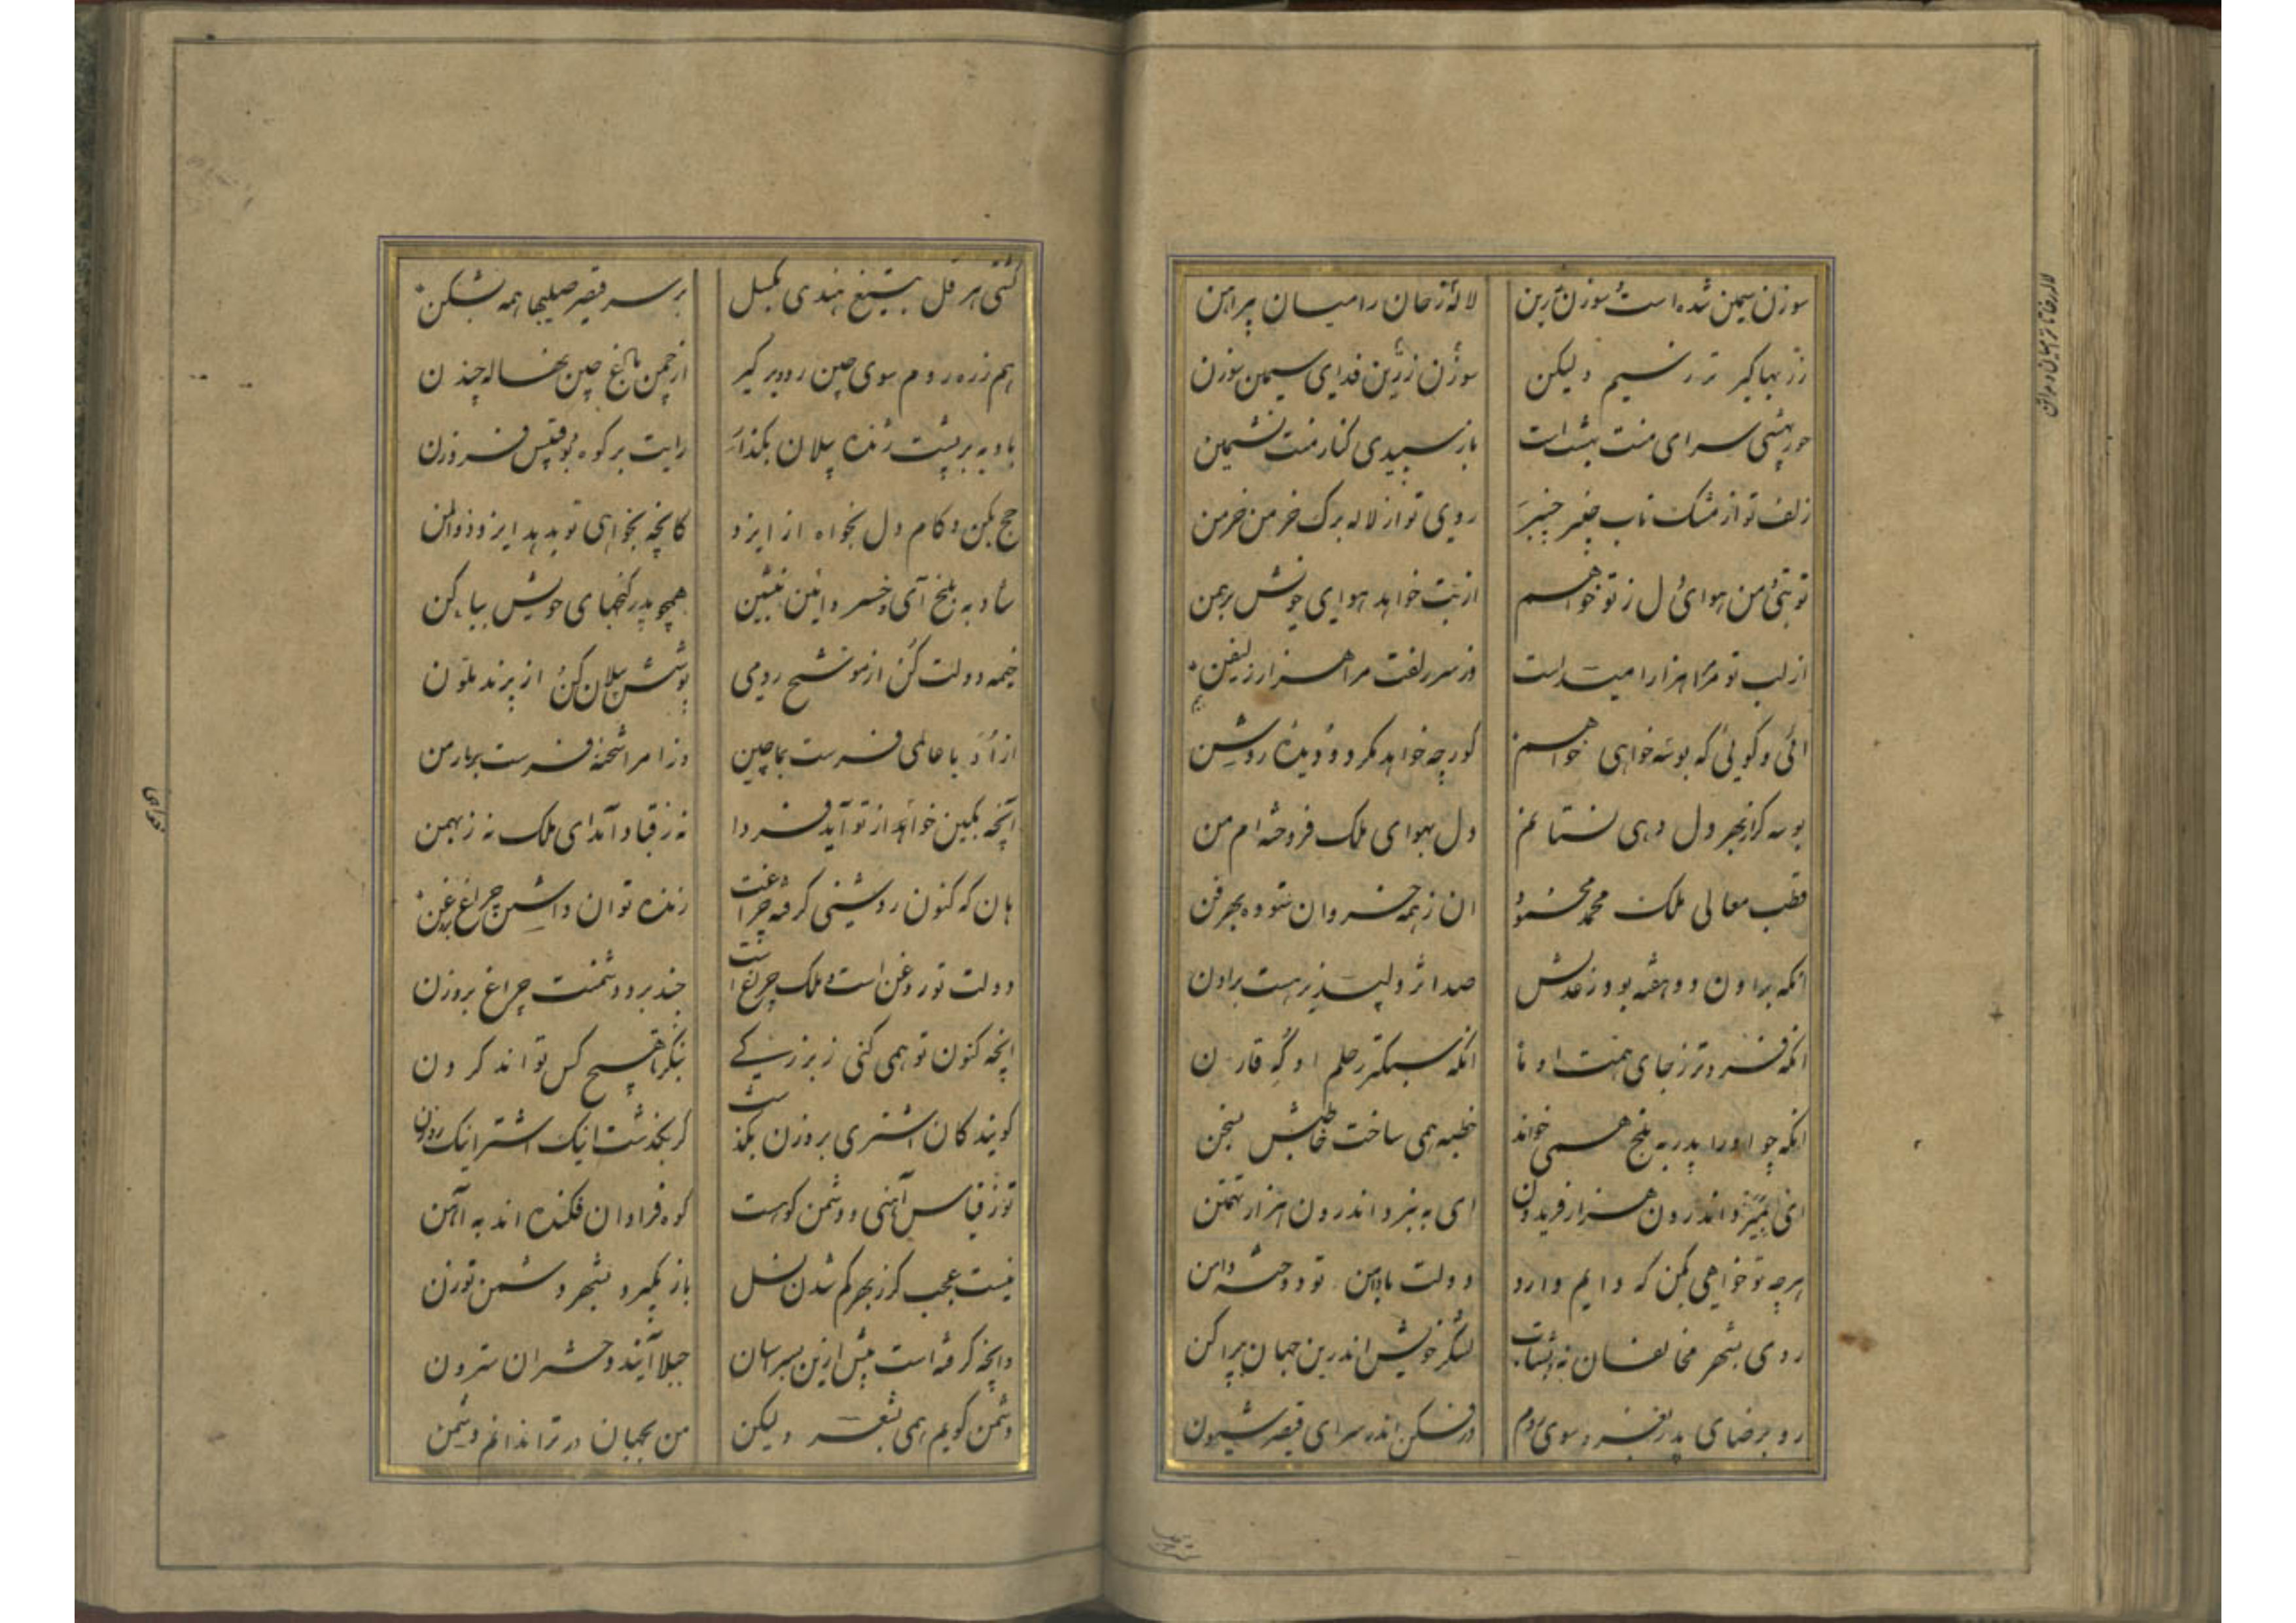 سوزن سیمین شده است و سوزن زرین لاله رخان را میان پیراهن
زر ببها گیر تر ز سیم ولیکن سوزن زرین فدای سیمین سوزن
حور بهشتی سرای منت بهشت است باز سپیدی کنار منت نشیمن
زلف تو از مشک ناب چنبر چنبر روی تو از لاله برگ خرمن خرمن
تو بتی و من هوای دل ز تو خواهم از بت خواهد هوای خویش برهمن
از لب تو مر مرا هزار امید است وز سر زلفت مرا هزار زلیفن
ائی و گویی که بوسه خواهی خواهم کور چه خواهد مگر دو دیده روشن
بوسه گر از بهر دل دهی نستانم دل بهوای ملک فروخته ام من
قطب معالی ملک محمد محمود ان ز همه خسروان ستوده بهر فن
انکه برادرن دو هفته بود ز عدلش صد اثر دلپذیر هست برادن
انکه فروتر ز جای همت او ما انکه سبکتر ز حلم او که قارن
انکه چو او را پدر به بلخ همی خواند خطبه همی ساخت خاطبش بسخن
ای بتمیز اندرون هزار فریدون ای به نبرد اندرون هزار تهمتن
هرچه تو خواهی بکن که دایم دارد دولت با دامن تو دوخته دامن
روی بشهر مخالفان نه و بشتاب لشکر خویش اندرین جهان بپراکن
رو برضای پدر بغزو سوی روم در فکن اندر سرای قیصر شیون
کشتی هرقل بتیغ هندی بکسل بر سر قیصر صلیبها همه بشکن
هم ز ره روم سوی چین رو و برگیر از چمن باغ چین نخاله چندن
بادیه بر پشت زنده پیلان بگذار رایت بر کوه بوقبیس فروزن
حج بکن و کام دل بخواه از ایزد کانچه بخواهی تو بدهد ایزد ذوالمن
شاد به بلخ آی و خسروانی بنشین همچو پدر گنجهای خویش بیاکن
خیمه دولت کن از موشح رومی پوشش پیلان کن از پرند ملون
عاملی فرست بماچین وز امرا شحنه فرست بار من
آنچه بکین خواهد از تو آید فردا نه ز قباد آمد ای ملک نه ز بهمن
هان که کنون روشنی گرفته چراغت زنده توان داشتن چراغ بروغن
دولت تو روغن است و ملک چراغ است چند برد دشمنت چراغ بروزن
انچه کنون تو همی کنی ز بزرگی بنگر تا هیچ کس تواند کردن
گویند کان اشتری بروزن بگذشت گر بگذشت اینک اشتر اینک روزن
تو ز قیاس آهنی و دشمن کوهست کوه فراوان فکنده اند به آهن
نیست عجب گر ز بهر کم شدن نسل باز نگیرد بشهر دشمن تو زن
دانچه گرفته است پیش ازین پسرانشان حیلا آیند و دختران سترون
دشمن گویم همی بشعر ولیکن من بجهان در ترا ندانم دشمن